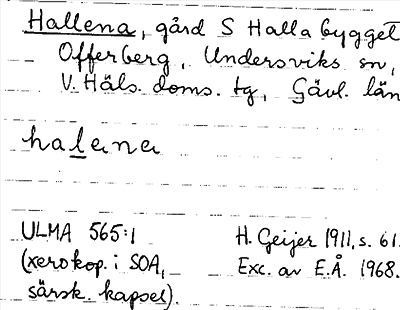 Hallena, gård S Halla bygget
Offerberg, Undersviks sn,
V. Häls. doms. tg, Gävl. län
halena
ULMA 565:1
(xerokop. i SOA,
särsk. kapsel).
H. Geijer 1911, s. 61.
Exc. av E.Å. 1968.